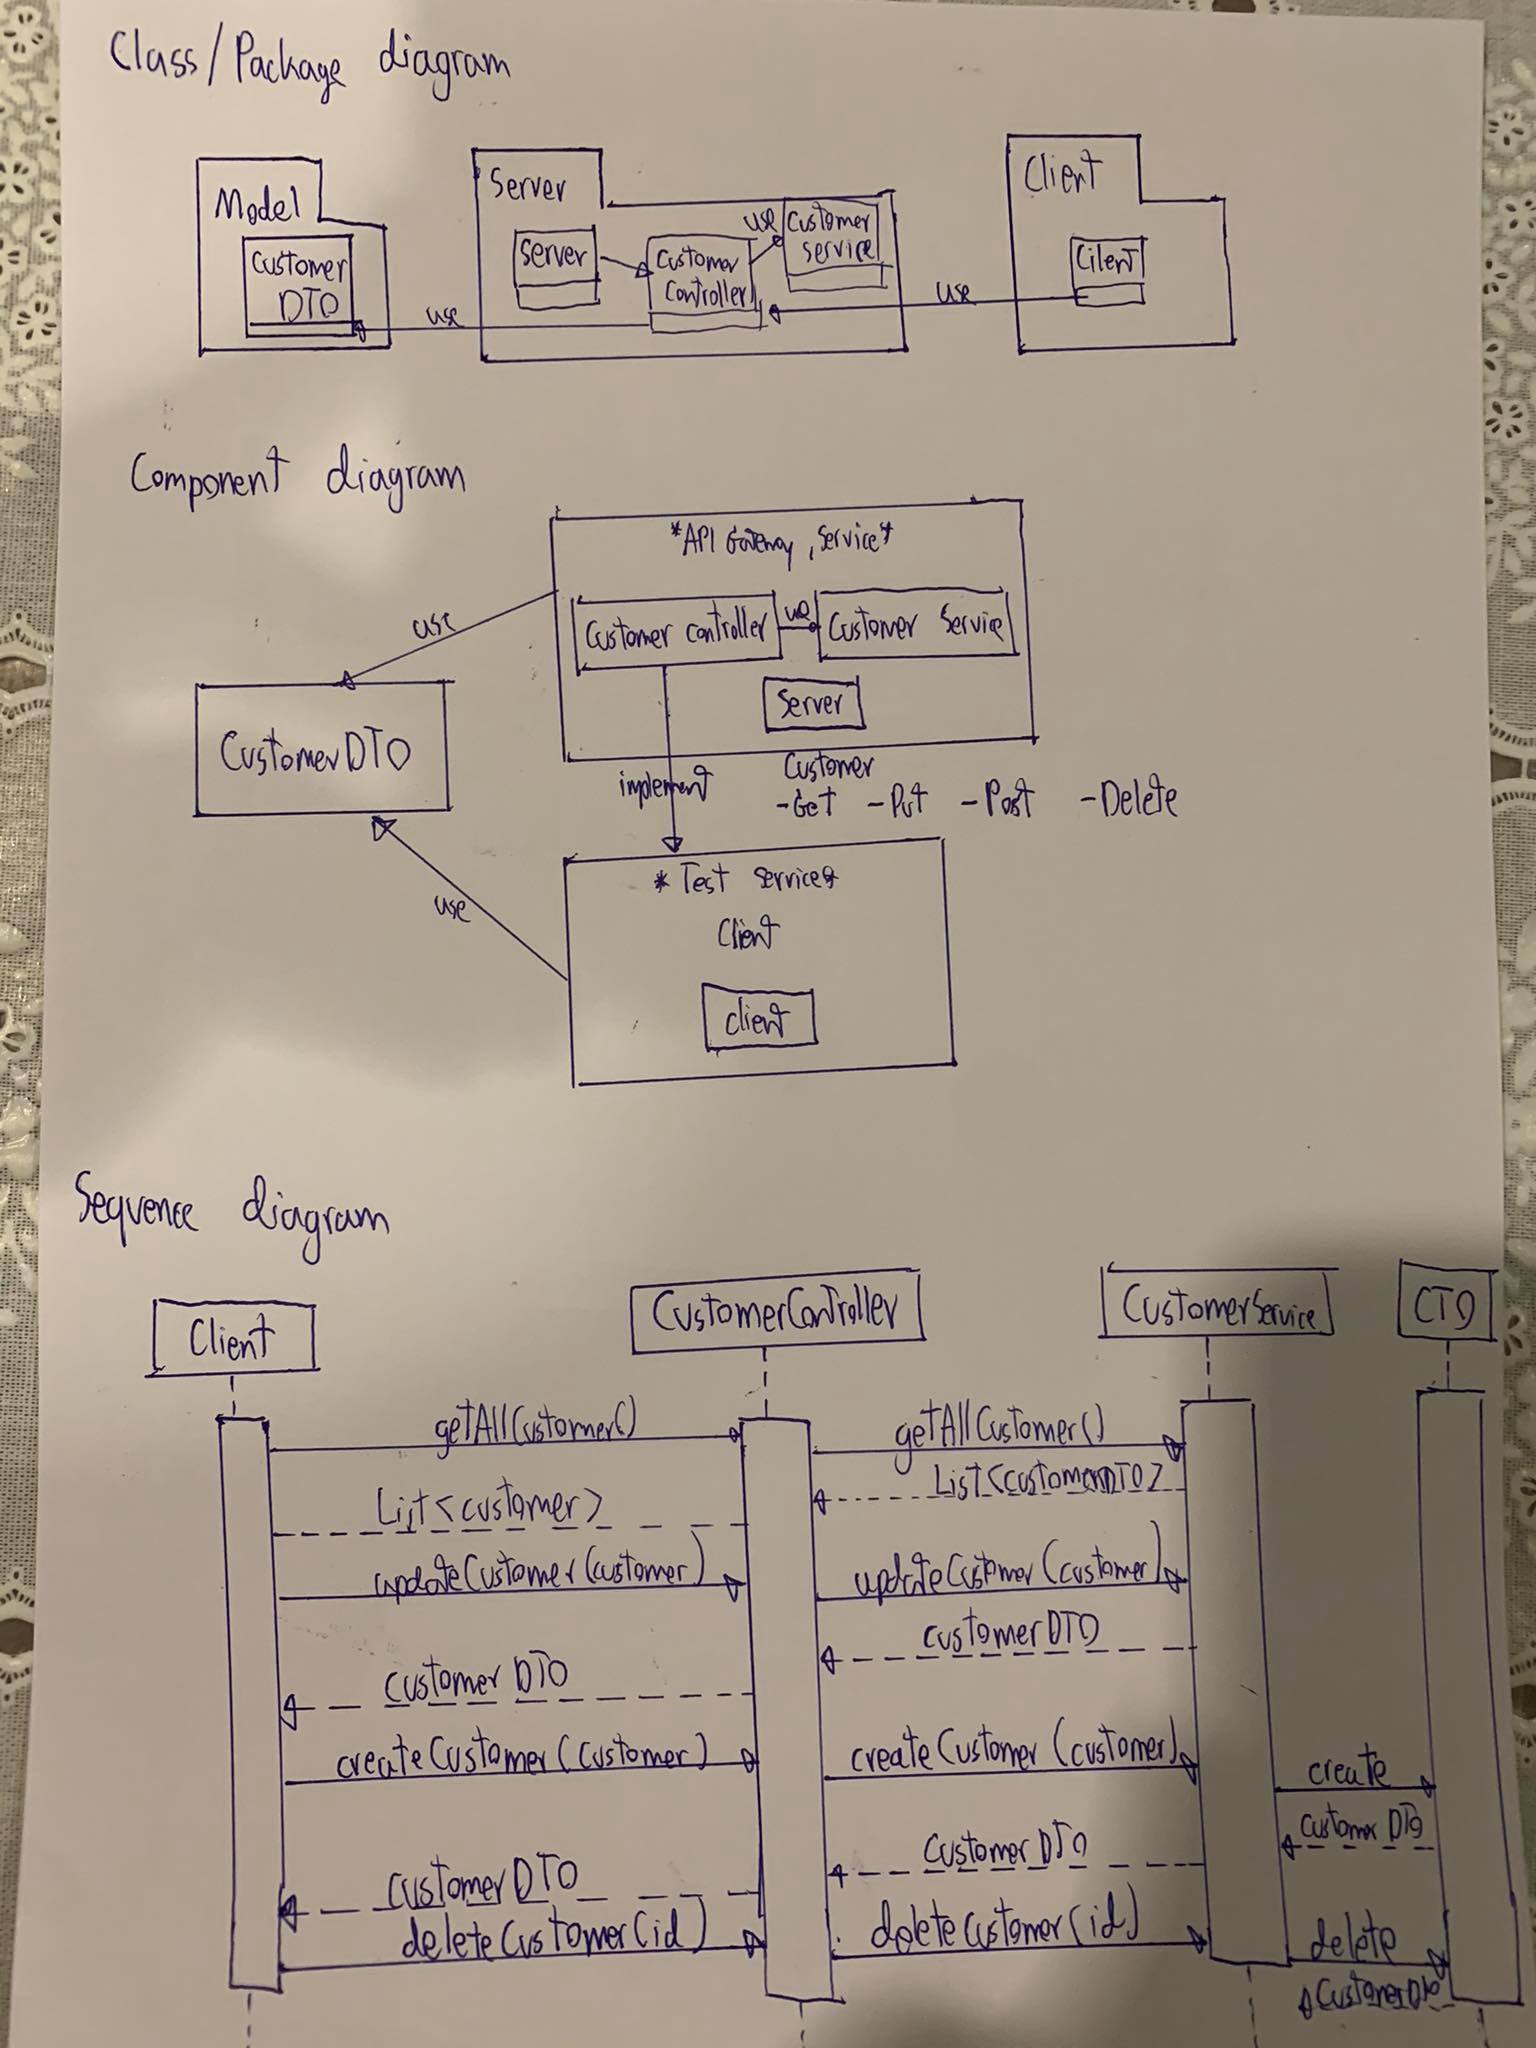 Class/Package diagram
Model
Customer
DTO
use
Server
Server
Customer
Controller
use
Customer
Service
use
Client
Cilent
Component diagram
*API Gateway, Service*
Customer controller
use
Customer Service
Server
use
CustomerDTO
implement
Customer
-Get -Put -Post -Delete
*Test Service*
Client
use
client
Sequence diagram
Client
CustomerController
CustomerService
CTO
getAllCustomer()
getAllCustomer()
List<customer>
List<customerDTO>
updateCustomer(customer)
updateCustomer(customer)
customerDTO
customer DTO
createCustomer(customer)
createCustomer(customer)
create
customer DTO
customer DTO
customerDTO
deleteCustomer(id)
deleteCustomer(id)
delete
CustomerDTO